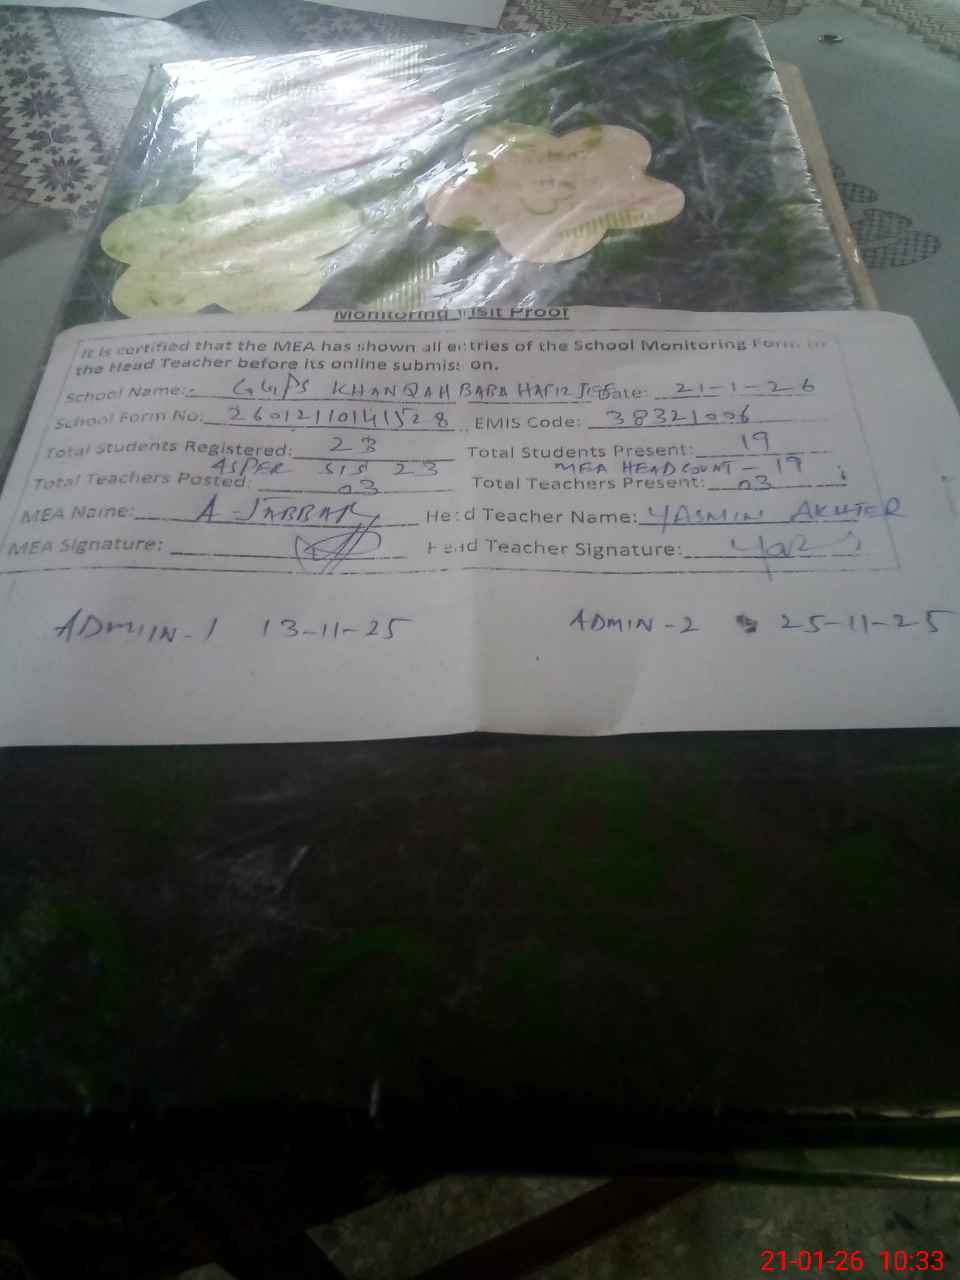 Monitoring Visit Proof
It is certified that the MEA has shown all entries of the School Monitoring Form to
the Head Teacher before its online submission.
School Name: GGPS KHANQAH BABA HAFIZ Date: 21-1-26
School Form No: 260121101411528 EMIS Code: 38321006
Total Students Registered: 23 Total Students Present: 19
ASPER SIS 23 MEA HEADCOUNT - 19
Total Teachers Posted: 03 Total Teachers Present: 03
MEA Name: A-JABBAR Head Teacher Name: YASMIN AKHTER
MEA Signature: Head Teacher Signature:
ADMIIN-1 13-11-25 ADMIN-2 25-11-25
21-01-26 10:33